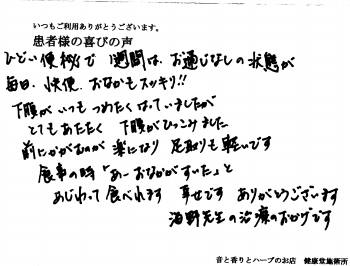 いつもご利用ありがとうございます。
患者様の喜びの声
ひどい便秘で 1週間は、お通じなしの状態が
毎日、快便、おなかもスッキリ!!
下腹がいつもつめたくなっていましたが
とてもあたたく 下腹がひっこみました
前にかがむのが 楽になり 足取りも軽いです
食事の時「あーおなかがすいた」と
あじわって食べれます 幸せです ありがとうございます
海野先生の治療のおかげです
音と香りとハーブのお店 健康堂施術所